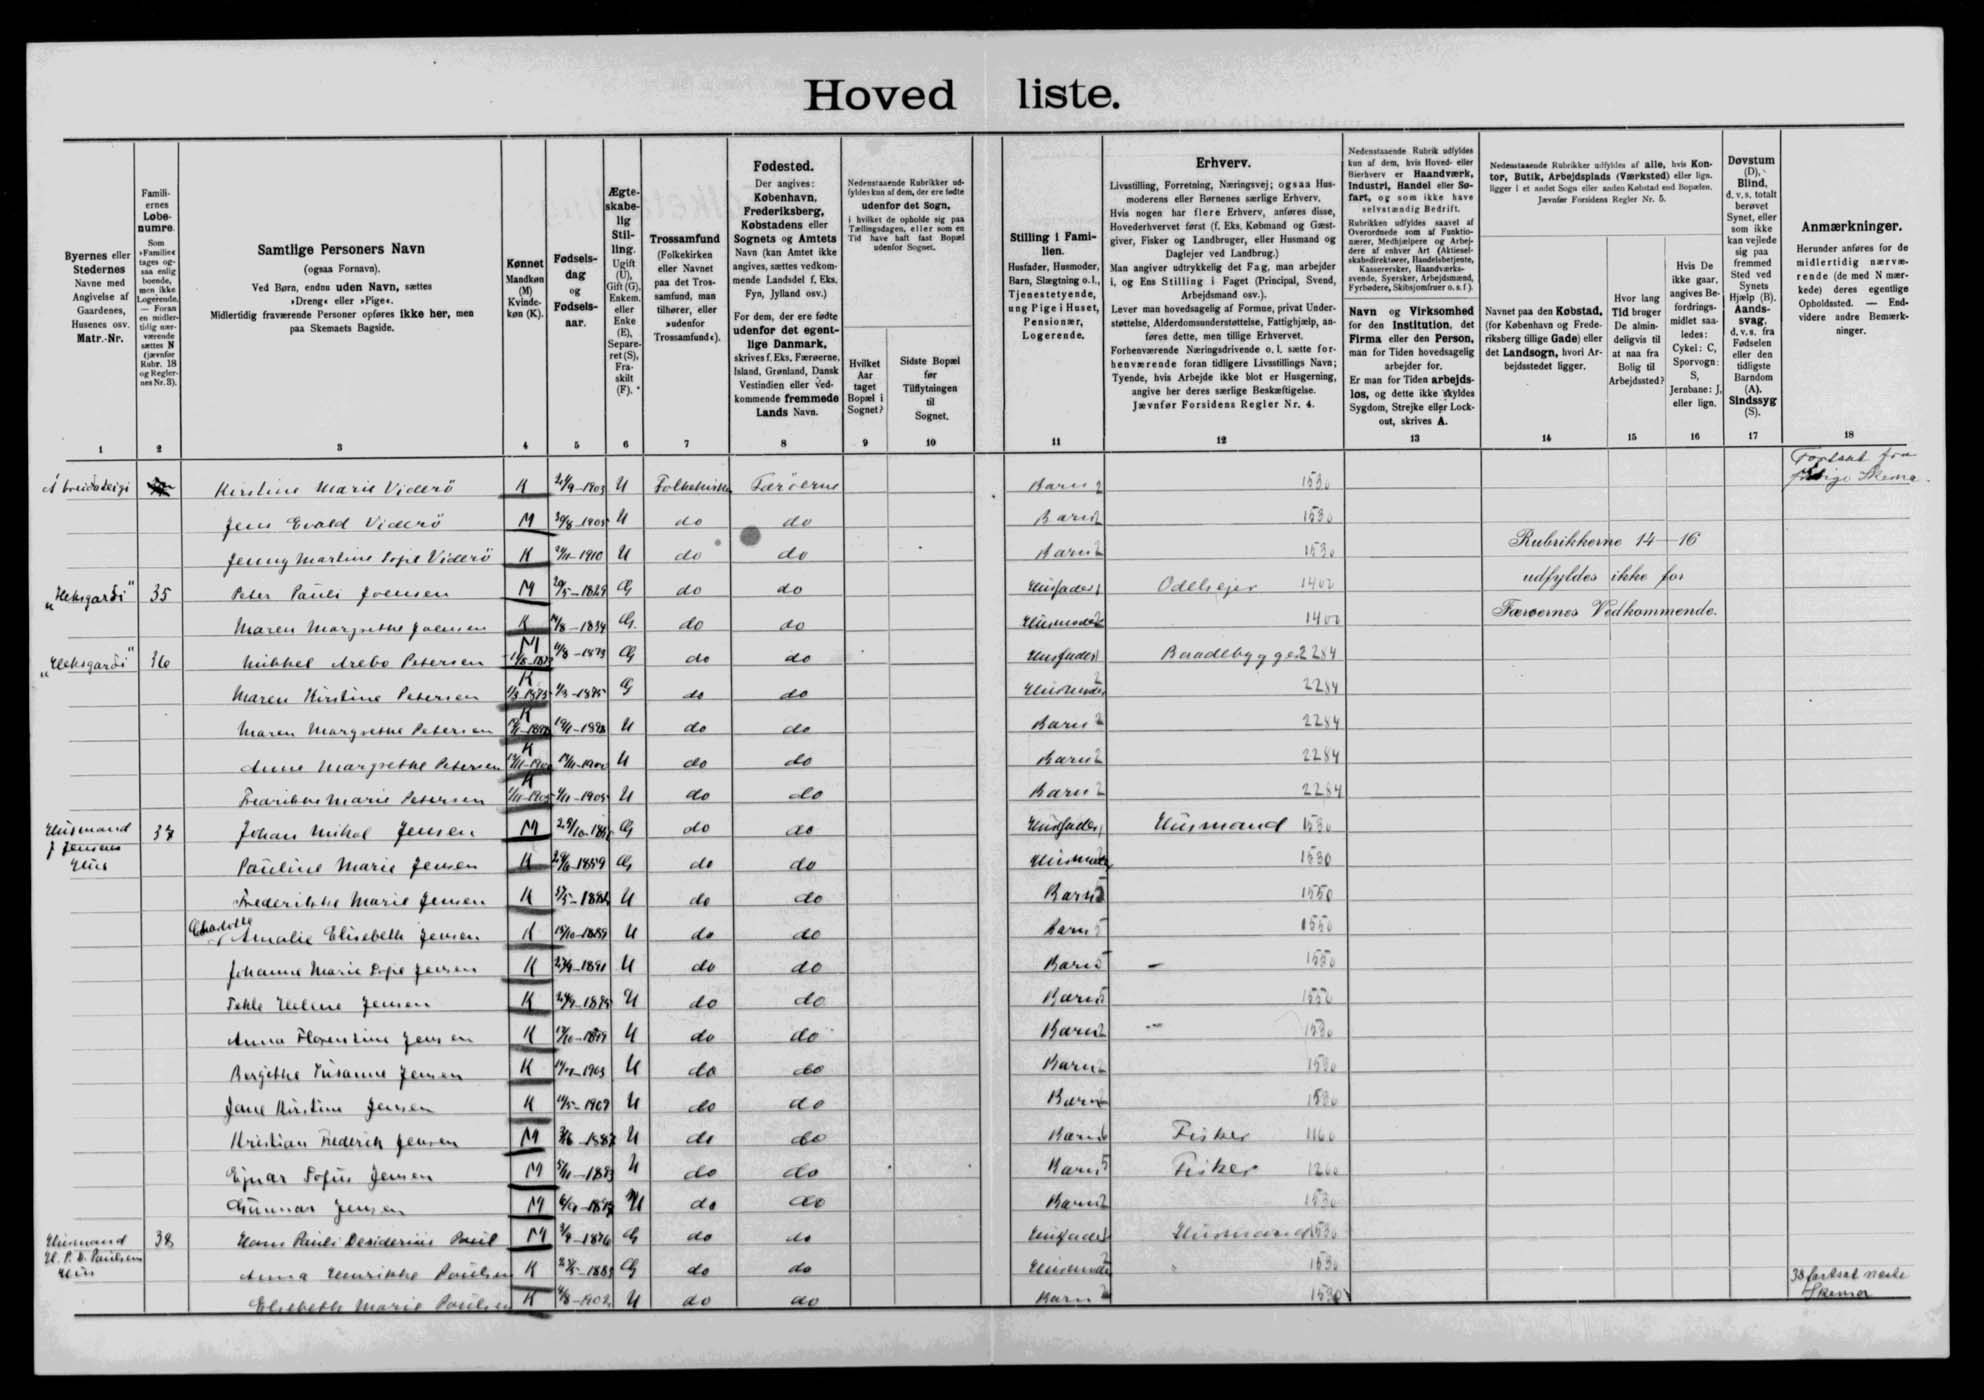 Hoved liste.
Byernes eller Stedernes Navne med Angivelse af Gaardenes, Husenes osv. Matr.-Nr.
Familiernes Løbenumre. Som »Familie« tages ogsaa enlig boende, men ikke Logerende. — Foran en midlertidig nærværende sættes N (jævnfør Rubr. 18 og Reglernes Nr. 3).
Samtlige Personers Navn (ogsaa Fornavn). Ved Børn, endnu uden Navn, sættes »Dreng« eller »Pige«. Midlertidig fraværende Personer opføres ikke her, men paa Skemaets Bagside.
Kønnet Mandkøn (M) Kvindekøn (K).
Fødselsdag og Fødselsaar.
Ægteskabelig Stilling. Ugift (U), Gift (G), Enkem. eller Enke (E), Separeret (S), Fraskilt (F).
Trossamfund (Folkekirken eller Navnet paa det Trossamfund, man tilhører, eller »udenfor Trossamfund«).
Fødested. Der angives: København, Frederiksberg, Købstadens eller Sognets og Amtets Navn (kan Amtet ikke angives, sættes vedkommende Landsdel f. Eks. Fyn, Jylland osv.) For dem, der ere fødte udenfor det egentlige Danmark, skrives f. Eks. Færøerne, Island, Grønland, Dansk Vestindien eller vedkommende fremmede Lands Navn.
Nedenstaaende Rubrikker udfyldes kun af dem, der ere fødte udenfor det Sogn, i hvilket de opholde sig paa Tællingsdagen, eller som en Tid have haft fast Bopæl udenfor Sognet.
Hvilket Aar taget Bopæl i Sognet?
Sidste Bopæl før Tilflytningen til Sognet.
Stilling i Familien. Husfader, Husmoder, Barn, Slægtning o. l., Tjenestetyende, ung Pige i Huset, Pensionær, Logerende.
Erhverv. Livsstilling, Forretning, Næringsvej; ogsaa Husmoderens eller Børnenes særlige Erhverv. Hvis nogen har flere Erhverv, anføres disse, Hovederhvervet først (f. Eks. Købmand og Gæstgiver, Fisker og Landbruger, eller Husmand og Daglejer ved Landbrug.) Man angiver udtrykkelig det Fag, man arbejder i, og Ens Stilling i Faget (Principal, Svend, Arbejdsmand osv.). Lever man hovedsagelig af Formue, privat Understøttelse, Alderdomsunderstøttelse, Fattighjælp, anføres dette, men tillige Erhvervet. Forhenværende Næringsdrivende o. l. sætte forhenværende foran tidligere Livsstillings Navn; Tyende, hvis Arbejde ikke blot er Husgerning, angive her deres særlige Beskæftigelse. Jævnfør Forsidens Regler Nr. 4.
Nedenstaaende Rubrik udfyldes kun af dem, hvis Hoved- eller Bierhverv er Haandværk, Industri, Handel eller Søfart, og som ikke have selvstændig Bedrift.
Navn og Virksomhed for den Institution, det Firma eller den Person, man for Tiden hovedsagelig arbejder for. Er man for Tiden arbejdsløs, og dette ikke skyldes Sygdom, Strejke eller Lockout, skrives A.
Nedenstaaende Rubrikker udfyldes af alle, hvis Kontor, Butik, Arbejdsplads (Værksted) eller lign. ligger i et andet Sogn eller anden Købstad end Bopælen. Jævnfør Forsidens Regler Nr. 5.
Navnet paa den Købstad, (for København og Frederiksberg tillige Gade) eller det Landsogn, hvori Arbejdsstedet ligger.
Hvor lang Tid bruger De almindeligvis til at naa fra Bolig til Arbejdssted?
Hvis De ikke gaar, angives Befordringsmidlet saaledes: Cykel: C, Sporvogn: S, Jernbane: J, eller lign.
Døvstum (D), Blind, d. v. s. totalt berøvet Synet, eller som ikke kan vejlede sig paa fremmed Sted ved Synets Hjælp (B). Aandssvag, d. v. s. fra Fødselen eller den tidligste Barndom (A). Sindssyg (S).
Anmærkninger. Herunder anføres for de midlertidig nærværende (de med N mærkede) deres egentlige Opholdssted. — Endvidere andre Bemærkninger.
1 2 3 4 5 6 7 8 9 10 11 12 13 14 15 16 17 18
Kirstine Marie Viderö K U Folkekirke Færöerne Barn 2 1530 Fortsat fra forrige Skema.
Jens Evald Viderö M U do do Barn 2 1530
Jenny Martine Sofie Viderö K U do do Barn 2 1530
Rubrikkerne 14—16 udfyldes ikke for Færøernes Vedkommende.
"Heksgardi" 35 Peter Pauli Joensen M 1829 G do do Husfader 1 Odelsejer 1400
Maren Margrethe Joensen K 1834 G do do Husmoder 2 1400
"Heksgardi" 36 Mikkel Arebo Petersen M G do do Husfader 1 Baadebygger 2284
Maren Kirstine Petersen K 1/3-1875 G do do Husmoder 2 2284
Maren Margrethe Petersen K U do do Barn 2 2284
Anne Margrethe Petersen K U do do Barn 2 2284
Fredrikke Marie Petersen K U do do Barn 2 2284
Husmand J Jensens Hus 37 Johan Mikal Jensen M G do do Husfader 1 Husmand 1530
Pauline Marie Jensen K 1859 G do do Husmoder 1530
Frederikke Marie Jensen K U do do Barn 5 1550
Charlotte Amalie Elisebeth Jensen K 1889 U do do Barn 5 1550
Johanne Marie Sofie Jensen K 1891 U do do Barn 5 1550
Tekle Helene Jensen K U do do Barn 5 1550
Anna Florentine Jensen K U do do Barn 2 1530
Bergithe Susanne Jensen K 1903 U do do Barn 2 1530
Jane Kirstine Jensen K U do do Barn 1530
Kristian Frederik Jensen M 1887 U do do Barn 6 Fisker 1160
Ejnar Sofus Jensen M 1893 U do do Barn 5 Fisker 1260
Gunnar Jensen M U do do Barn 2 1530
Husmand H. P. D. Paulsens Hus 38 Hans Pauli Desiderius Poul M 1876 G do do Husfader Husmand 1530
Anna Henrikke Poulsen K G do do Husmoder 2 1530
Elsebeth Marie Poulsen K 1902 U do do Barn 2 1530
38 fortsat næste Skema